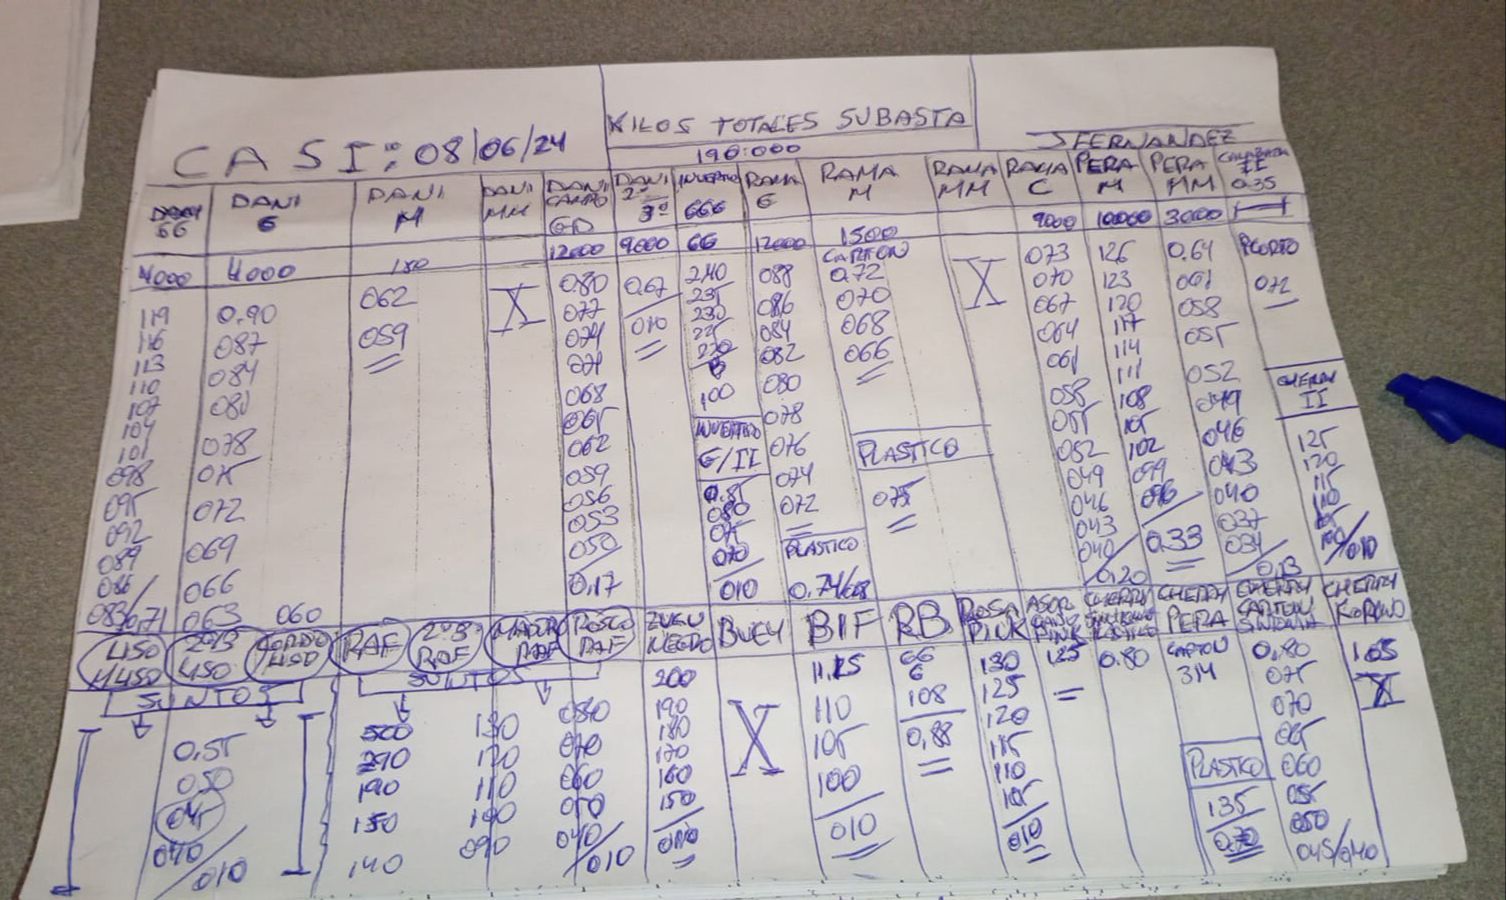 CASI: 08/06/24
KILOS TOTALES SUBASTA
190.000
JFERNANDEZ
GG
DANI G
DANI M
DANI MM
DANI CAMPO GD
DANI 2ª 3ª
INVERTIO GGG
RAMA G
RAMA M
RAMA MM
RAMA C
PERA M
PERA MM
II 0.35
4000
4000
180
12000
9000
GG
12000
1500
9000
10000
3000
119
116
113
110
107
104
101
098
095
092
089
086/
083/071
0.90
087
084
081
078
075
072
069
066
063 060
062
059
X
080
077
074
071
068
065
062
059
056
053
050
0.17
0.67
010
240
235
230
225
220
100
INVERTIO
G/II
0.85
080
075
070
010
088
086
084
082
080
078
076
074
072
PLASTICO
0.74/068
CARTON
0.72
070
068
066
PLASTICO
075
X
073
070
067
064
061
058
055
052
049
046
043
040/
0.20
126
123
120
117
114
111
108
105
102
099
096
0.33
0.64
061
058
055
052
049
046
043
040
037
034/
0.13
072
CHERRY
II
125
120
115
110
105
100/010
RAF
2ª3ª RAF
ZUGU NEGRO
BUEY
BIF
RB
ROSA PINK
CHERRY PERA
CHERRY CARTON
CHERRY
JUNTOS
JUNTOS
0,55
0,50
045
040/
010
190
150
140
130
120
110
100
090
080
070
060
050
040/
010
200
190
180
170
160
150
X
11.15
110
105
100
010
GG
G
108
0,88
130
125
120
115
110
105
010
125
0.80
CARTON
314
PLASTICO
135
0.70
0.80
075
070
065
060
055
050
045/040
1.05
X